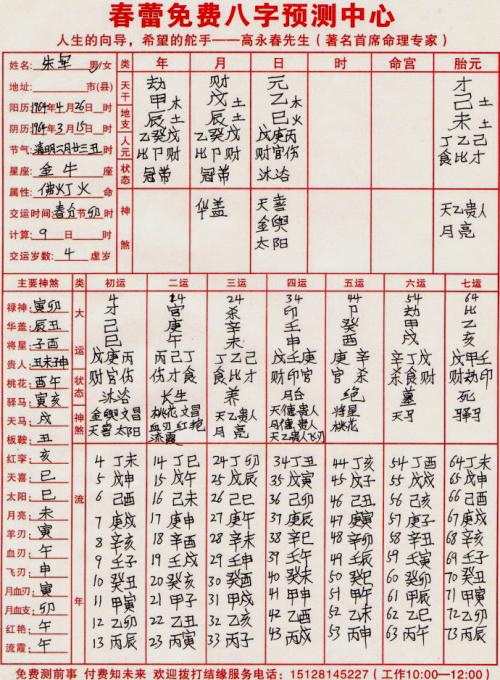 春蕾免费八字预测中心
人生的向导，希望的舵手——高永春先生（著名首席命理专家）
姓名: 朱军 男/女 类 年 月 日 时 命宫 胎元
地址: 市(县) 天干 劫 财 元 才
甲木 戊土 乙木 己土
阳历: 1964年4月26日 时 地支 辰土 辰土 巳火 未土
阴历: 1964年3月15日 时 人元 乙癸戊 乙癸戊 戊庚丙 丁乙己
节气: 清明二月廿三丑时 比卩财 比卩财 财官伤 食比才
星座: 金牛 座 状态 冠带 冠带 沐浴
属性: 佛灯火 命
交运时间: 春分节卯时 神煞 华盖 天喜 天乙贵人
计算: 9 日 时 金舆 月亮
交运岁数: 4 虚岁 太阳
主要神煞 初运 二运 三运 四运 五运 六运 七运
大运 4 14 24 34 44 54 64
禄神: 寅卯 才 官 杀 印 卩 劫 比
华盖: 辰丑 己 庚 辛 壬 癸 甲 乙
将星: 子酉 巳 午 未 申 酉 戌 亥
贵人: 丑未子申 戊庚丙 丙己丁 丁乙己 戊壬庚 庚辛 辛丁戊 戊甲壬
桃花: 酉午 状态 财官伤 伤才食 食比才 财印官 官杀 杀食财 财劫印
驿马: 寅亥 沐浴 长生 养 绝 墓 死
天马: 戌 神煞 金舆文昌 桃花文昌 天乙贵人 天德贵人 将星 天马 驿马
板鞍: 丑 天喜太阳 血刃红艳 月亮 月德贵人 桃花
流霞 天乙贵人飞刃
红孪: 亥 流年 4丁未 14丁巳 24丁卯 34丁丑 44丁亥 54丁酉 64丁未
天喜: 巳 5戊申 15戊午 25戊辰 35戊寅 45戊子 55戊戌 65戊申
太阳: 巳 6己酉 16己未 26己巳 36己卯 46己丑 56己亥 66己酉
月亮: 未 7庚戌 17庚申 27庚午 37庚辰 47庚寅 57庚子 67庚戌
羊刃: 寅 8辛亥 18辛酉 28辛未 38辛巳 48辛卯 58辛丑 68辛亥
血刃: 午 9壬子 19壬戌 29壬申 39壬午 49壬辰 59壬寅 69壬子
飞刃: 申 10癸丑 20癸亥 30癸酉 40癸未 50癸巳 60癸卯 70癸丑
月血刃: 寅 11甲寅 21甲子 31甲戌 41甲申 51甲午 61甲辰 71甲寅
月血支: 卯 12乙卯 22乙丑 32乙亥 42乙酉 52乙未 62乙巳 72乙卯
红艳: 午 13丙辰 23丙寅 33丙子 43丙戌 53丙申 63丙午 73丙辰
流霞: 午
免费测前事 付费知未来 欢迎拨打结缘服务电话：15128145227（工作10:00—12:00）